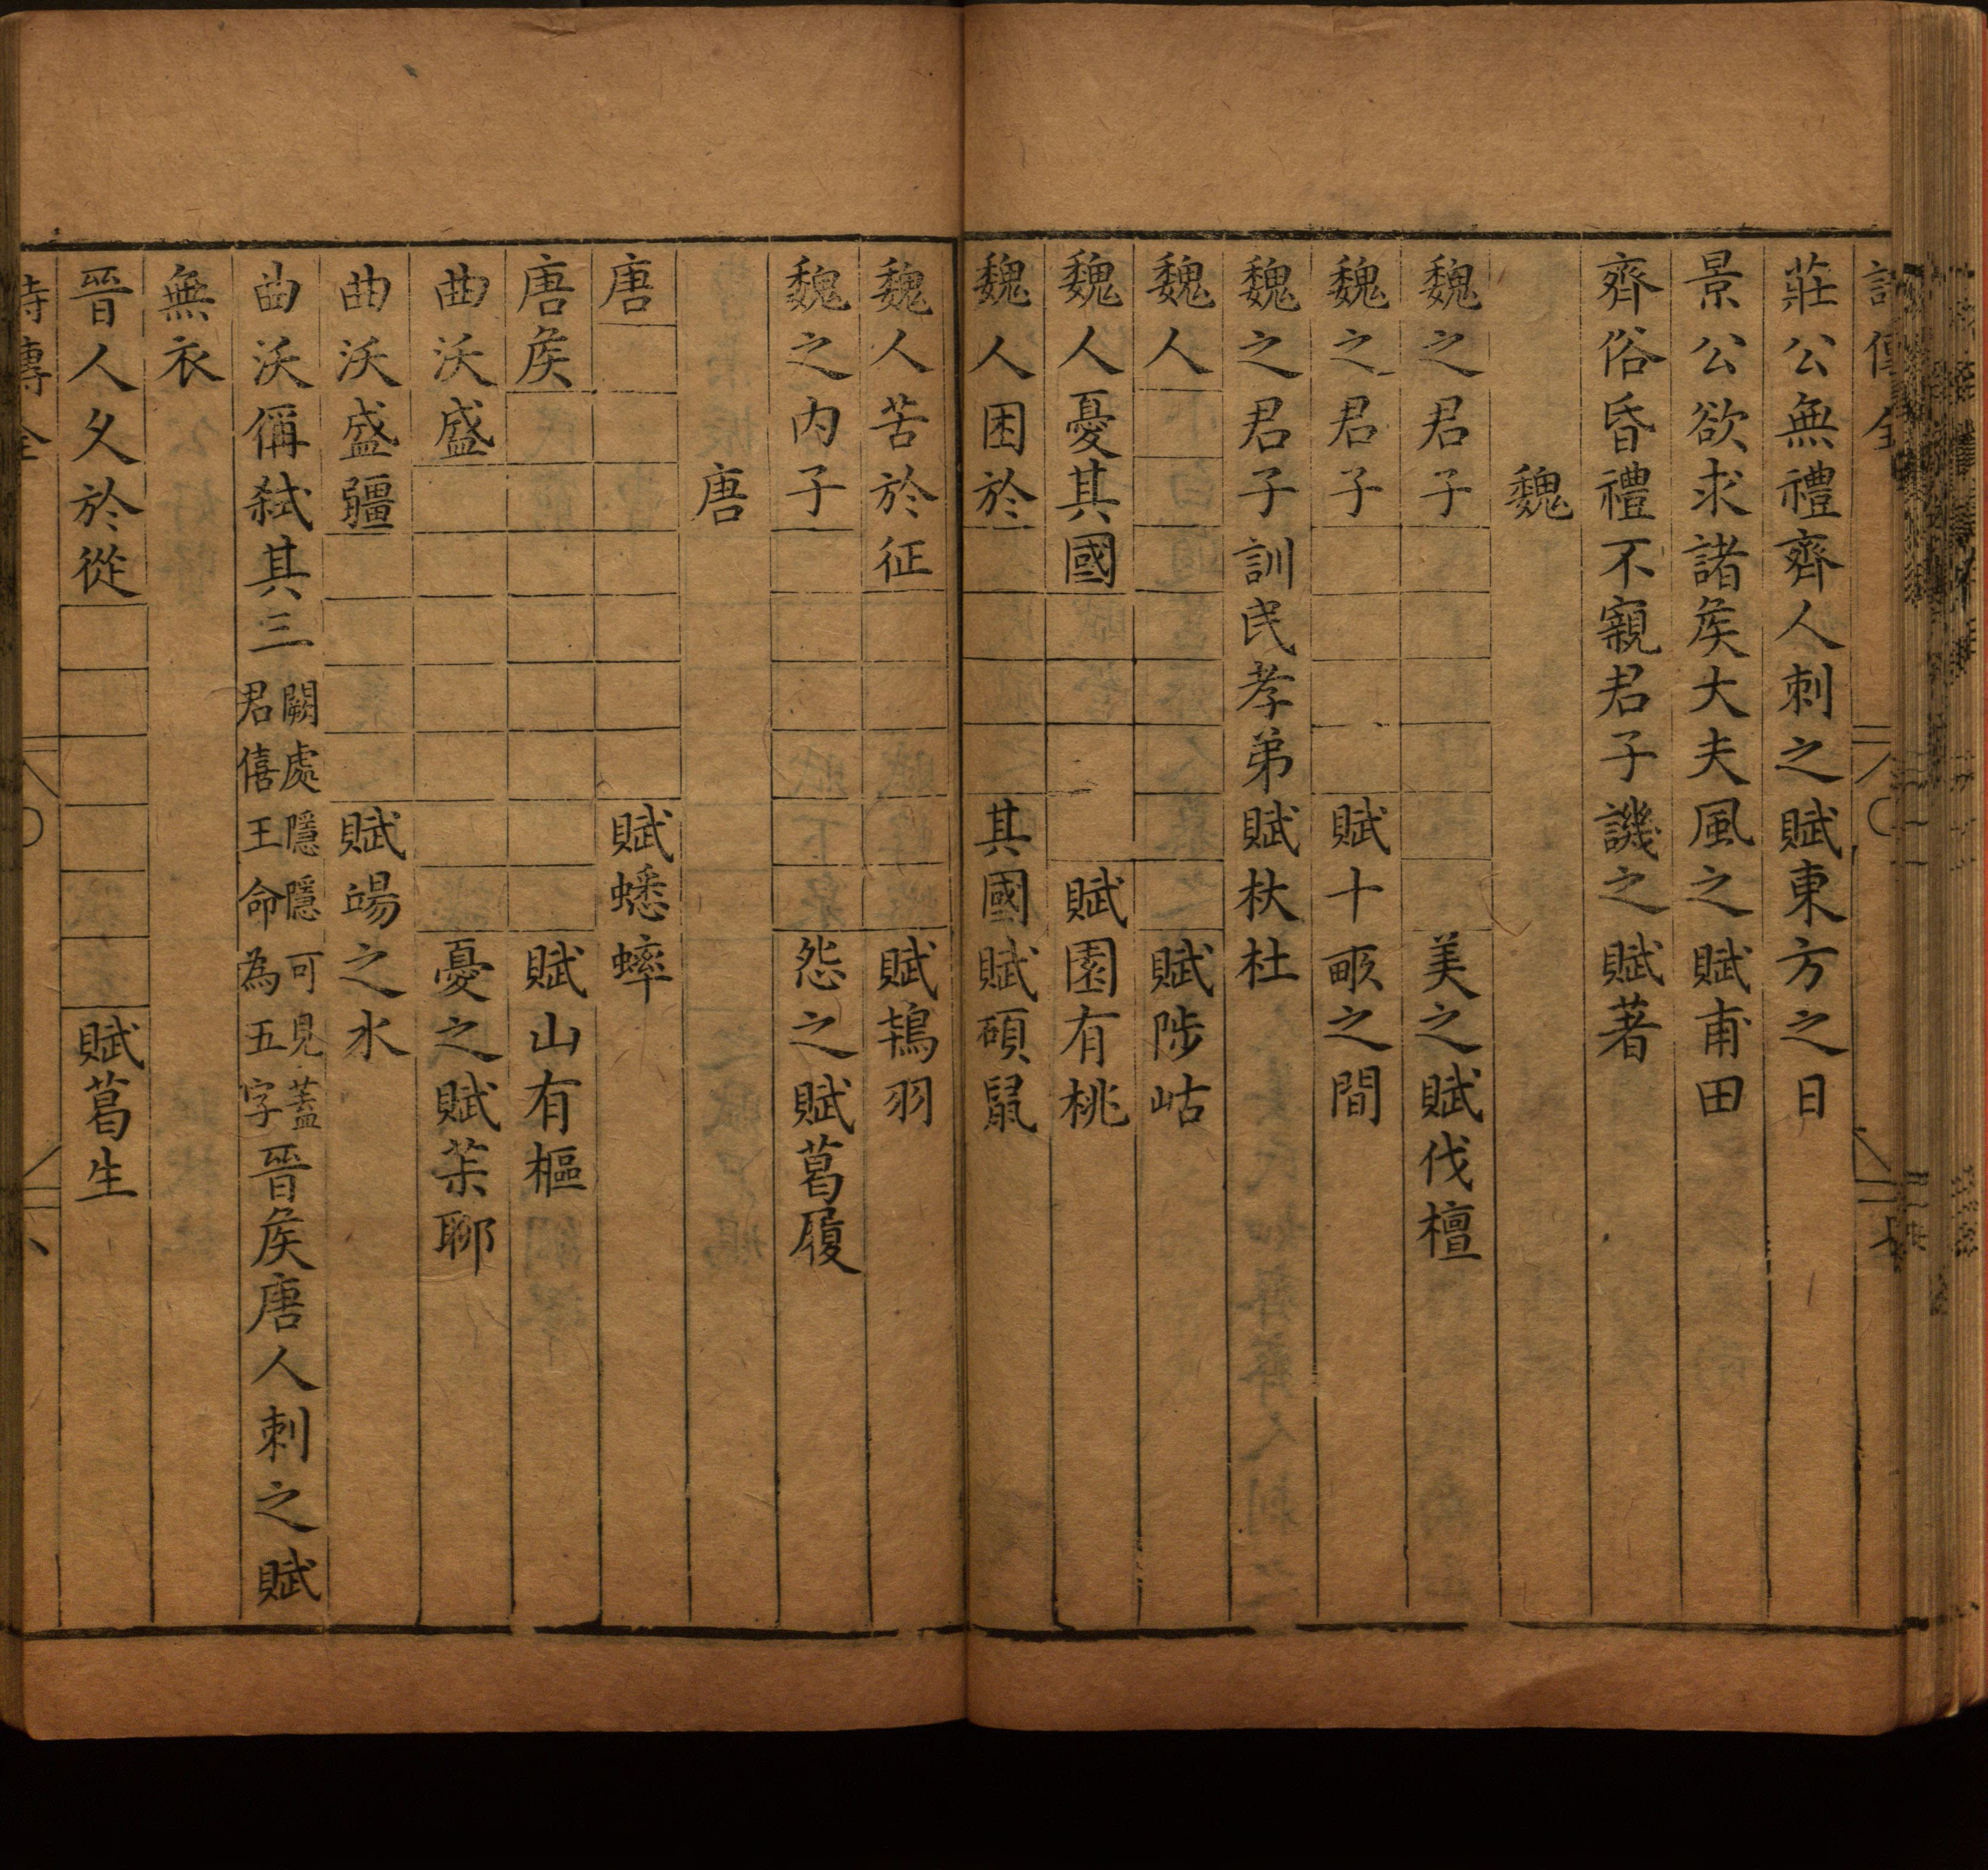 莊公無禮齊人刺之賦東方之日
景公欲求諸矦大夫風之賦甫田
齊俗昏禮不親君子譏之賦著
魏
魏之君子□□□□□□美之賦伐檀
魏之君子□□□□賦十畞之間
魏之君子訓民孝弟賦杕杜
魏人□□□□□□□□賦陟岵
魏人憂其國□□□□賦園有桃
魏人困於□□□□其國賦碩鼠
魏人苦於征□□□□□賦鴇羽
魏之內子□□□□□□怨之賦葛屨
唐
唐□□□□□□□賦蟋蟀
唐矦□□□□□□□□賦山有樞
曲沃盛□□□□□□□憂之賦茮聊
曲沃盛彊□□□□賦昜之水
曲沃偁弑其三闕處隱隱可見蓋君僖王命為五字晉矦唐人刺之賦
無衣
晉人久於從□□□□□□賦葛生
詩傳全